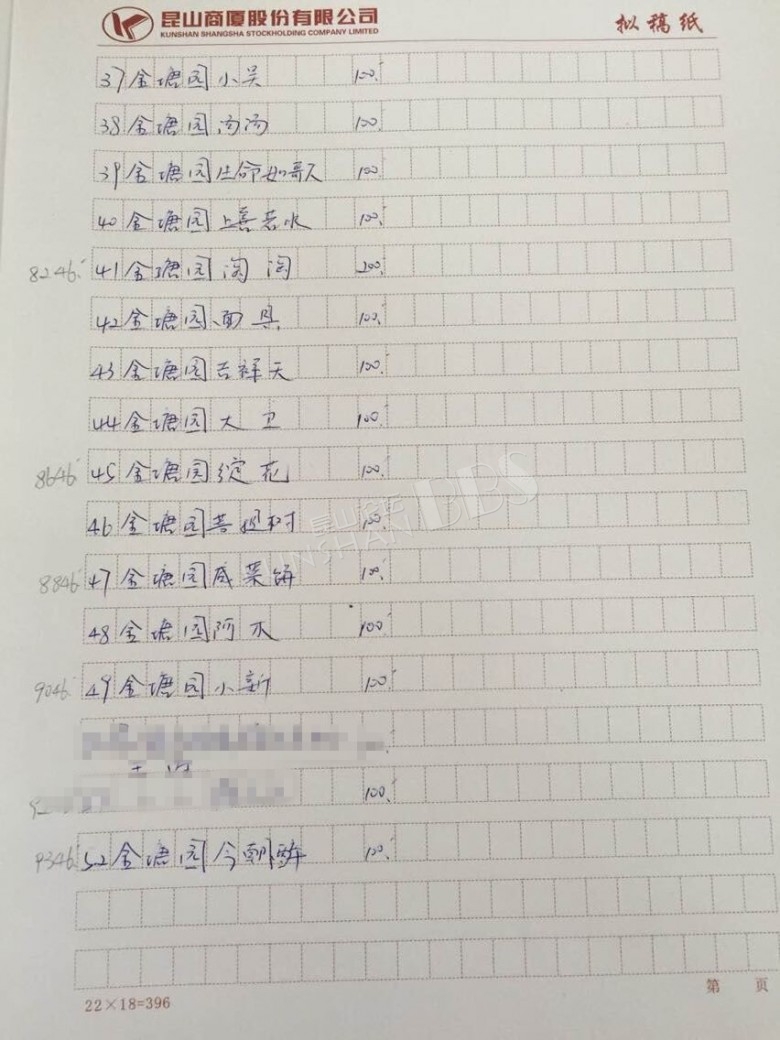 昆山商厦股份有限公司
KUNSHAN SHANGSHA STOCKHOLDING COMPANY LIMITED
拟稿纸
37 金塘园小吴 100.
38 金塘园汤汤 100.
39 金塘园生命如歌 100.
40 金塘园上善若水 100.
8246. 41 金塘园 淘淘 200.
42 金塘园 面具 100.
43 金塘园吉祥天 100.
44 金塘园 大卫 100
8646. 45 金塘园绽花 100.
46 金塘园菩提树 100.
8846. 47 金塘园咸菜饼 100.
48 金塘园阿木 100.
9046. 49 金塘园小新 100.
100.
9346. 52 金塘园今朝醉 100.
昆山论坛 BBS
KUNSHAN
22×18=396
第 页